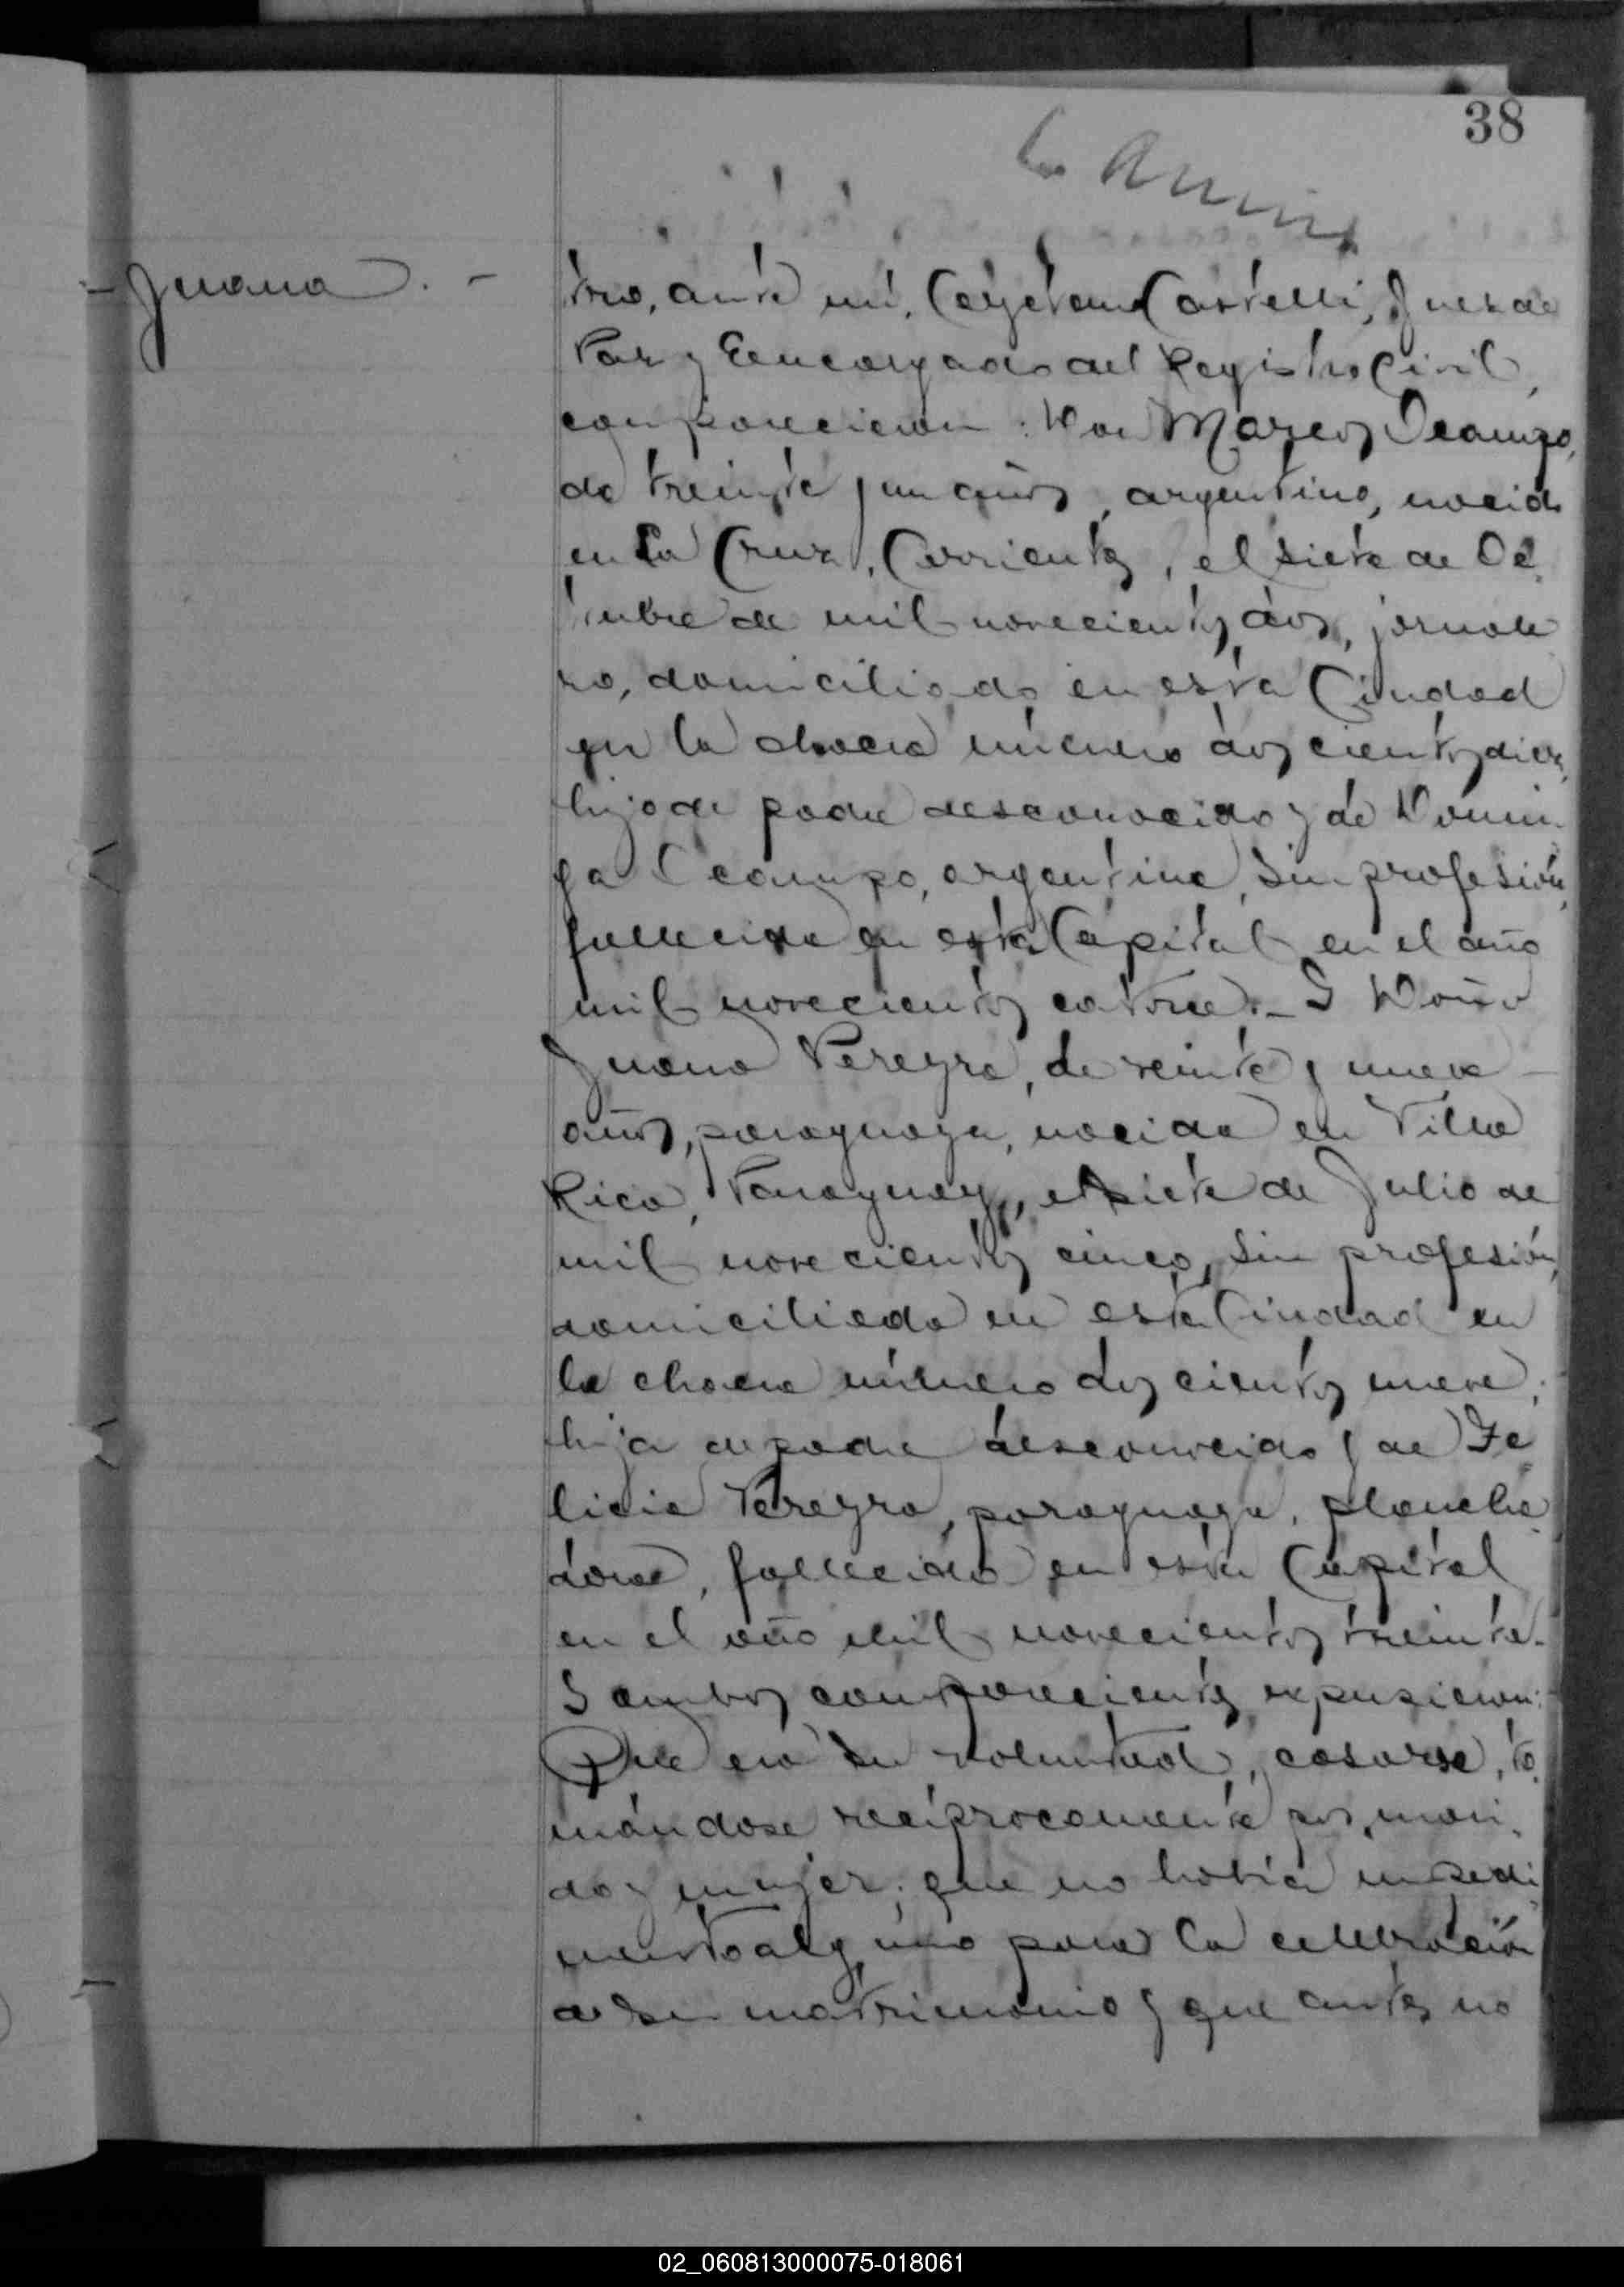 38
- Juana. -
tro, ante mí, Cayetano Castelli, Juez de
Paz y Eencargado del Registro Civil,
comparecieron: Don Marcos Ocampo,
de treinta y un años, argentino, nacido
en La Cruz, Corrientes, el siete de Oc
tubre de mil novecientos dos, jornale
ro, domiciliado en esta Ciudad
en la chacra número dos cientos diez,
hijo de padre desconocido y de Domin
ga Ocampo, argentina, sin profesión,
fallecida en esta Capital en el año
mil novecientos catorce.- Y Doña
Juana Pereyra, de veinte y nueve
años, paraguaya, nacida en Villa
Rica, Paraguay, el siete de Julio de
mil novecientos cinco, sin profesión,
domiciliada en esta Ciudad en
la chacra número dos cientos nueve,
hija de padre desconocido y de Fe
licia Pereyra, paraguaya, plancha
dora, fallecida en esta Capital
en el año mil novecientos treinta.-
Y ambos comparecientes expusieron:
Que era su voluntad, casarse, to
mándose recíprocamente por mari
do y mujer; que no había impedi
mento alguno para la celebración
de su matrimonio y que antes no
02_060813000075-018061